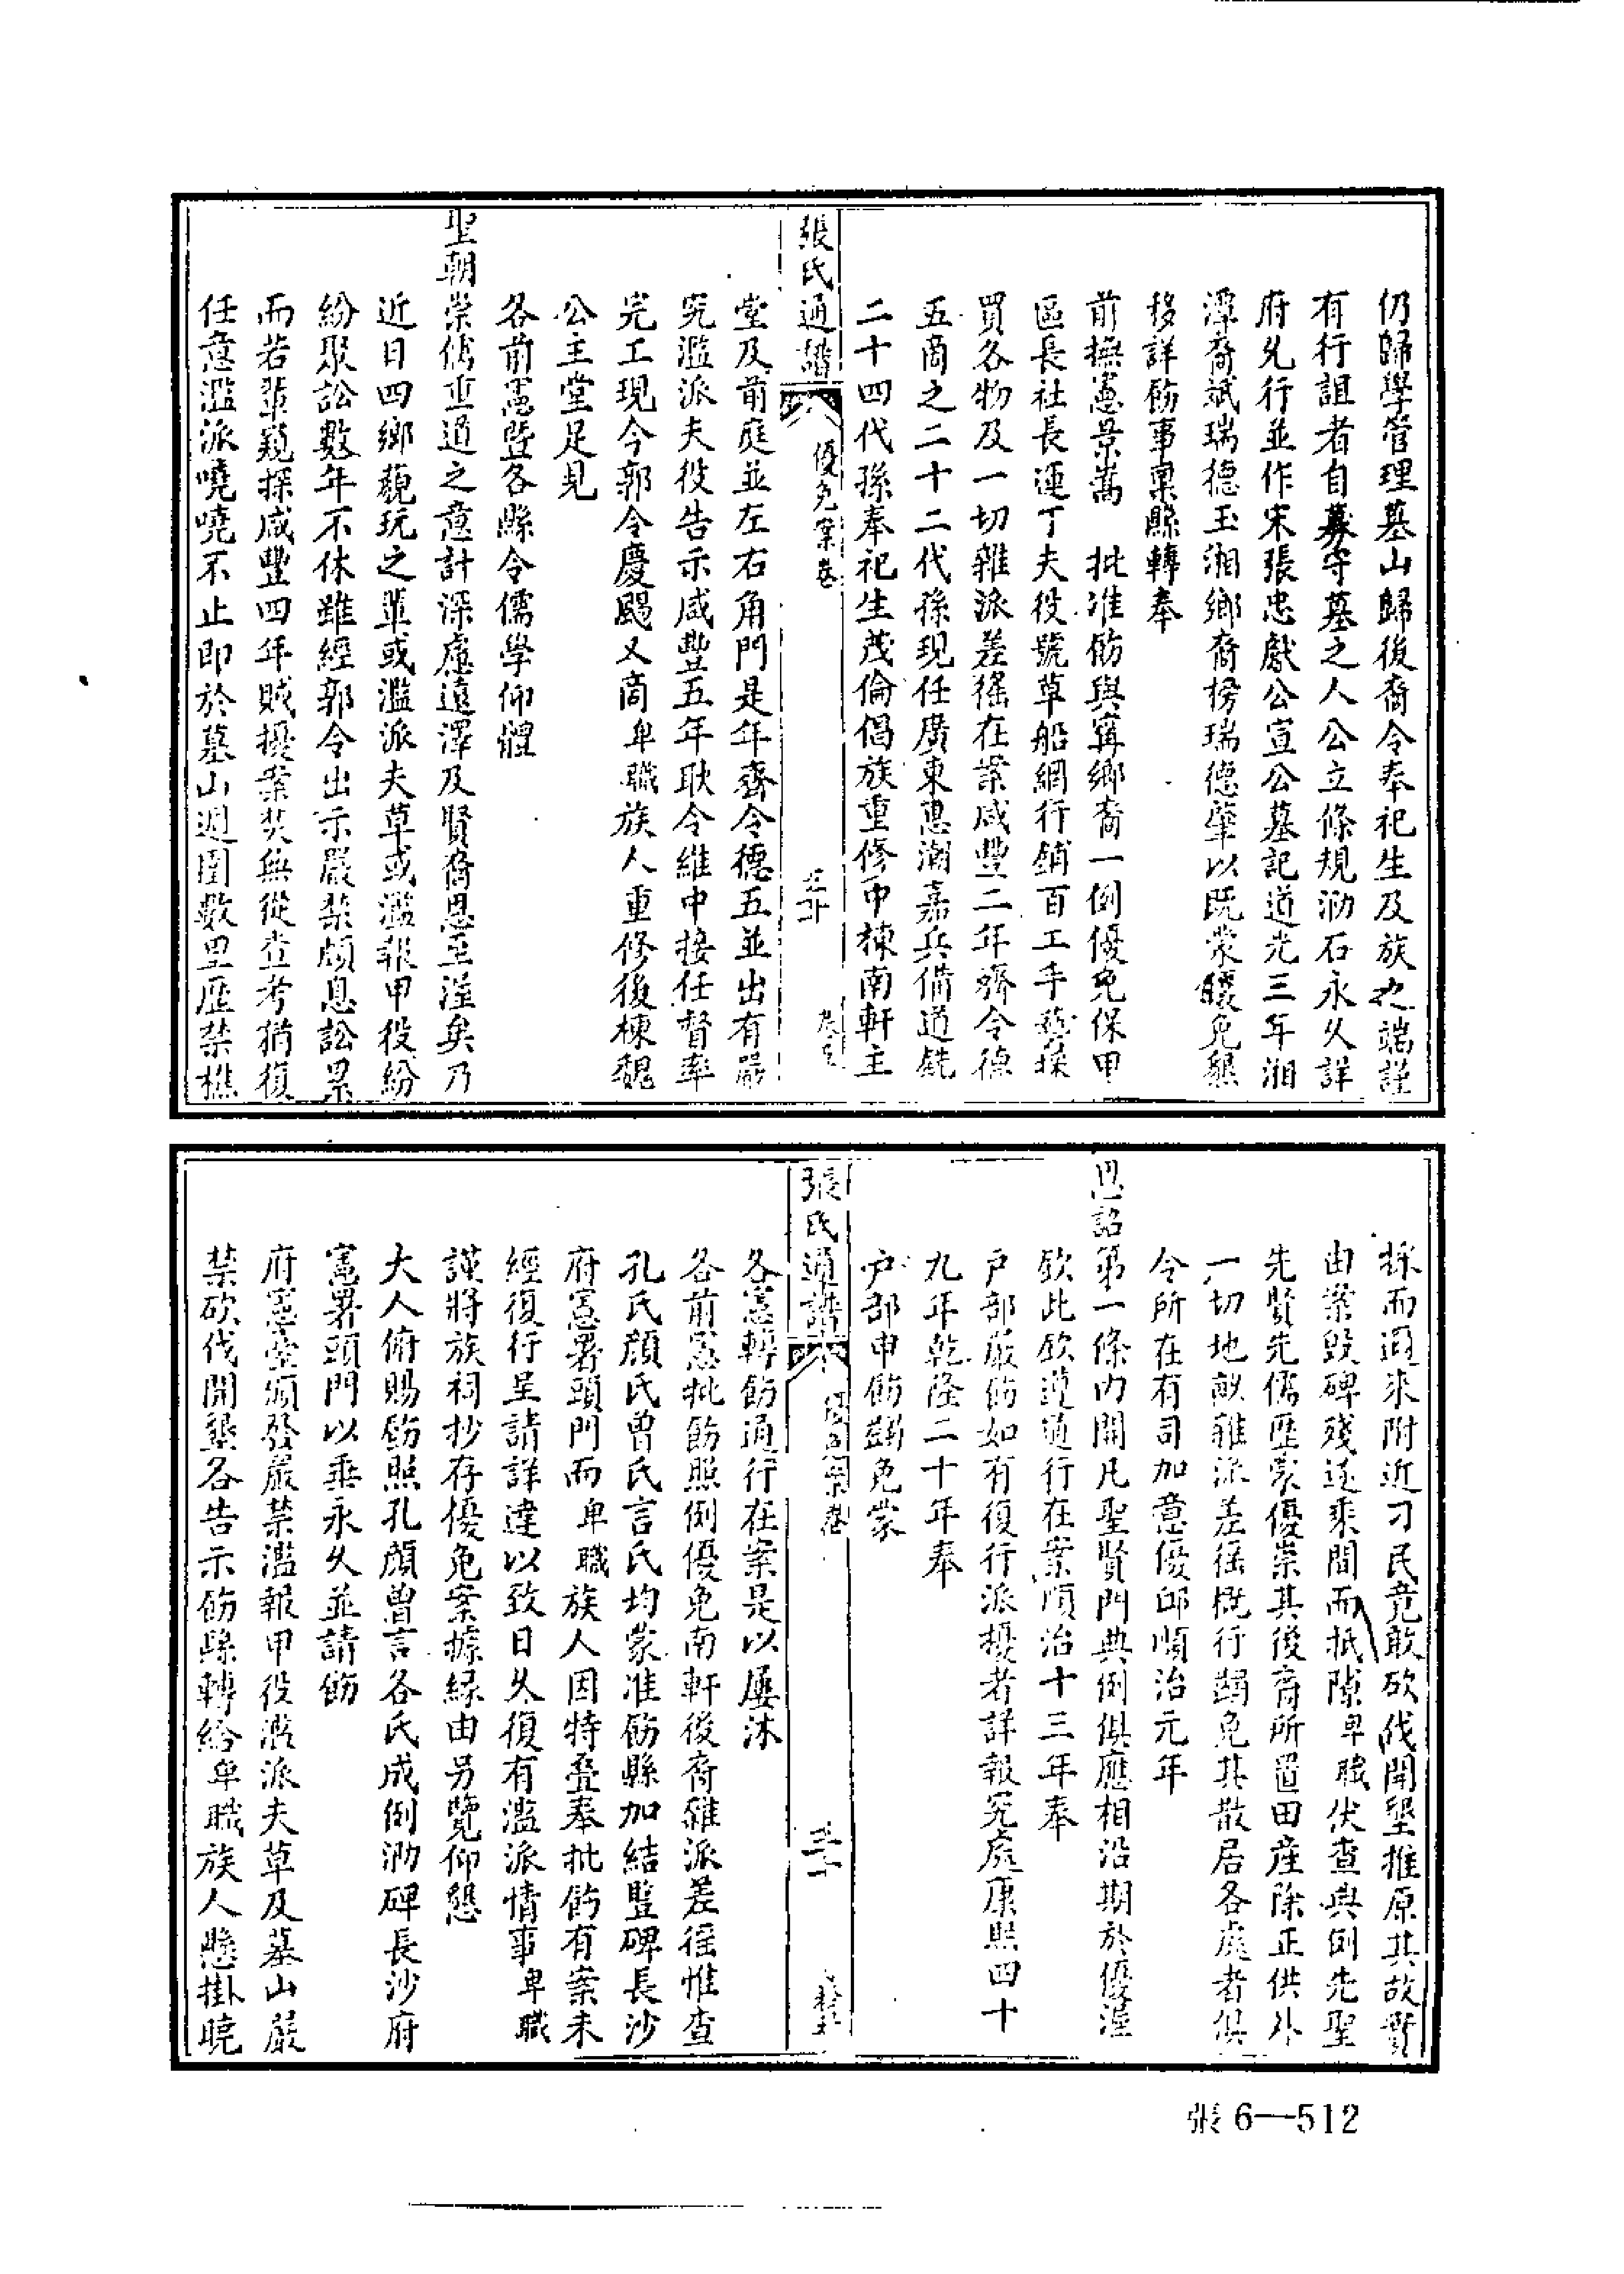 仍歸學管理墓山歸後裔令奉祀生及族之端謹
有行誼者自募守墓之人公立條規泐石永久詳
府允行並作宋張忠獻公宣公墓記道光三年湘
潭裔斌瑞德玉湘鄉裔榜瑞德肇以既蒙優免懇
移詳飭事稟縣轉奉
前撫憲景嵩 批准飭與寧鄉裔一例優免保甲
區長社長運丁夫役號草船網行鋪百工手藝採
買各物及一切雜派差徭在案咸豐二年齊令德
五商之二十二代孫現任廣東惠潮嘉兵備道銑
二十四代孫奉祀生茂倫倡族重修中棟南軒主
張氏通譜 優免案卷
堂及前庭並左右角門是年齊令德五並出有嚴
究濫派夫役告示咸豐五年耿令維中接任督率
完工現今郭令慶颺又商卑職族人重修後棟魏
公主堂足見
各前憲暨各縣令儒學仰體
聖朝崇儒重道之意計深慮遠澤及賢裔恩至渥矣乃
近日四鄉藐玩之輩或濫派夫草或濫報甲役紛
紛聚訟數年不休雖經郭令出示嚴禁頗息訟累
而若輩窺探咸豐四年賊擾案焚無從查考猶復
任意濫派嘵嘵不止即於墓山週圍數里歷禁樵
採而週來附近刁民竟敢砍伐開墾推原其故實
由案毀碑殘遂乘間而抵隙卑職伏查典例先聖
先賢先儒歷蒙優崇其後裔所置田產除正供外
一切地畝雜派差徭概行蠲免其散居各處者俱
令所在有司加意優卹順治元年
恩詔第一條內開凡聖賢門典例俱應相沿期於優渥
欽此欽遵通行在案順治十三年奉
戶部嚴飭如有復行派擾者詳報究處康熙四十
九年乾隆二十年奉
戶部申飭蠲免蒙
張氏通譜 優免案卷
各憲轉飭通行在案是以屢沐
各前憲批飭照例優免南軒後裔雜派差徭惟查
孔氏顏氏曾氏言氏均蒙准飭縣加結豎碑長沙
府憲署頭門而卑職族人因特疊奉批飭有案未
經復行呈請詳達以致日久復有濫派情事卑職
謹將族祠抄存優免案據緣由另覽仰懇
大人俯賜飭照孔顏曾言各氏成例泐碑長沙府
憲署頭門以垂永久並請飭
府憲堂頒發嚴禁濫報甲役濫派夫草及墓山嚴
禁砍伐開墾各告示飭縣轉給卑職族人懸掛曉
張6—512